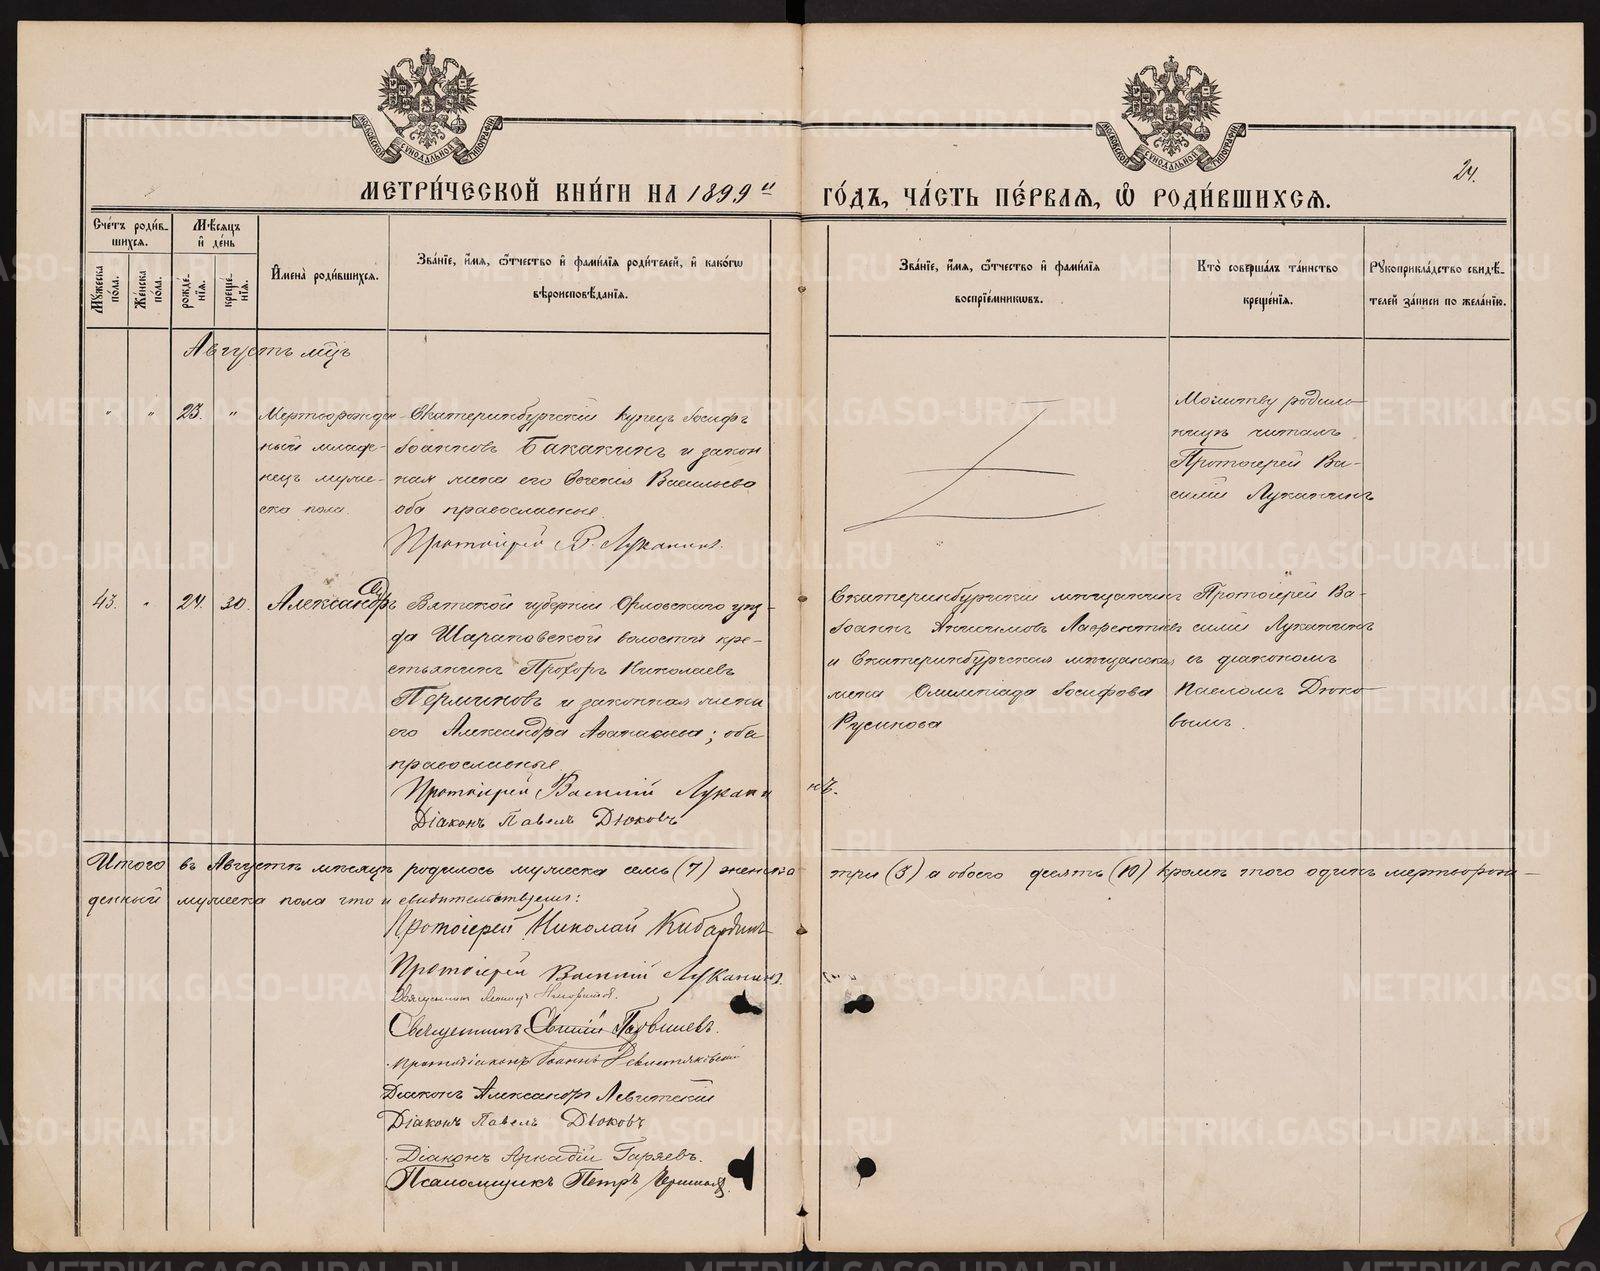 24.
МЕТРИ́ЧЕСКОЙ КНИ́ГИ НА 1899 и҃ ГО́ДЪ, ЧА́СТЬ ПЕ́РВАЯ, Ѡ҆ РОДИ́ВШИХСѦ.
Сче́тъ роди́в-
шихсѧ.
Мѣ́сѧцъ
и҆ де́нь
Му́жеска по́ла.
Же́нска по́ла.
рожде́-
нїѧ.
креще́-
нїѧ.
И҆мена̀ роди́вшихсѧ.
Зва́нїе, и҆́мѧ, ѻ҆́тчество и҆ фами́лїѧ роди́телей, и҆ како́гѡ
вѣроисповѣ́данїѧ.
Зва́нїе, и҆́мѧ, ѻ҆́тчество и҆ фами́лїѧ
воспрїе́мникѡвъ.
Кто̀ соверша́лъ та́инство
креще́нїѧ.
Рукоприкла́дство свидѣ́-
телей за́писи по жела́нїю.
Августъ мц҃ъ
" " 23. "
Мертворожде-
ный младе-
нецъ муже-
ска пола.
Екатеринбургскій купецъ Іосифъ
Іоанновъ Бакакинъ и закон
ная жена его Евгенія Васильева
оба православные.
Протоіерей В. Луканинъ.
Молитву родиль-
ницѣ читалъ
Протоіерей Ва-
силій Луканинъ
43. " 24. 30.
Александръ
Вятской губерніи Орловскаго уѣз-
да Шараповской волости кре-
стьянинъ Прохоръ Николаевъ
Перминовъ и законная жена
его Александра Аѳанасьева; оба
православные.
Протоіерей Василій Луканинъ.
Діаконъ Павелъ Дюковъ
Екатеринбургскій мѣщанинъ
Іоаннъ Анисимовъ Лаврентьевъ
и Екатеринбургская мѣщанская
жена Олимпіада Іосифова
Русинова
Протоіерей Ва-
силій Луканинъ
съ діакономъ
Павломъ Дюко-
вымъ.
Итого въ Августѣ мѣсяцѣ родилось мужеска семь (7) женска три (3) а обоего десять (10) кромѣ того одинъ мертворож-
денный мужеска пола что и свидѣтельствуемъ:
Протоіерей Николай Кибардинъ
Протоіерей Василій Луканинъ.
Священникъ
Священникъ
Протодіаконъ Іоаннъ
Діаконъ Александръ Левитскій
Діаконъ Павелъ Дюковъ
Діаконъ Аркадій Гаряевъ.
Псаломщикъ Петръ